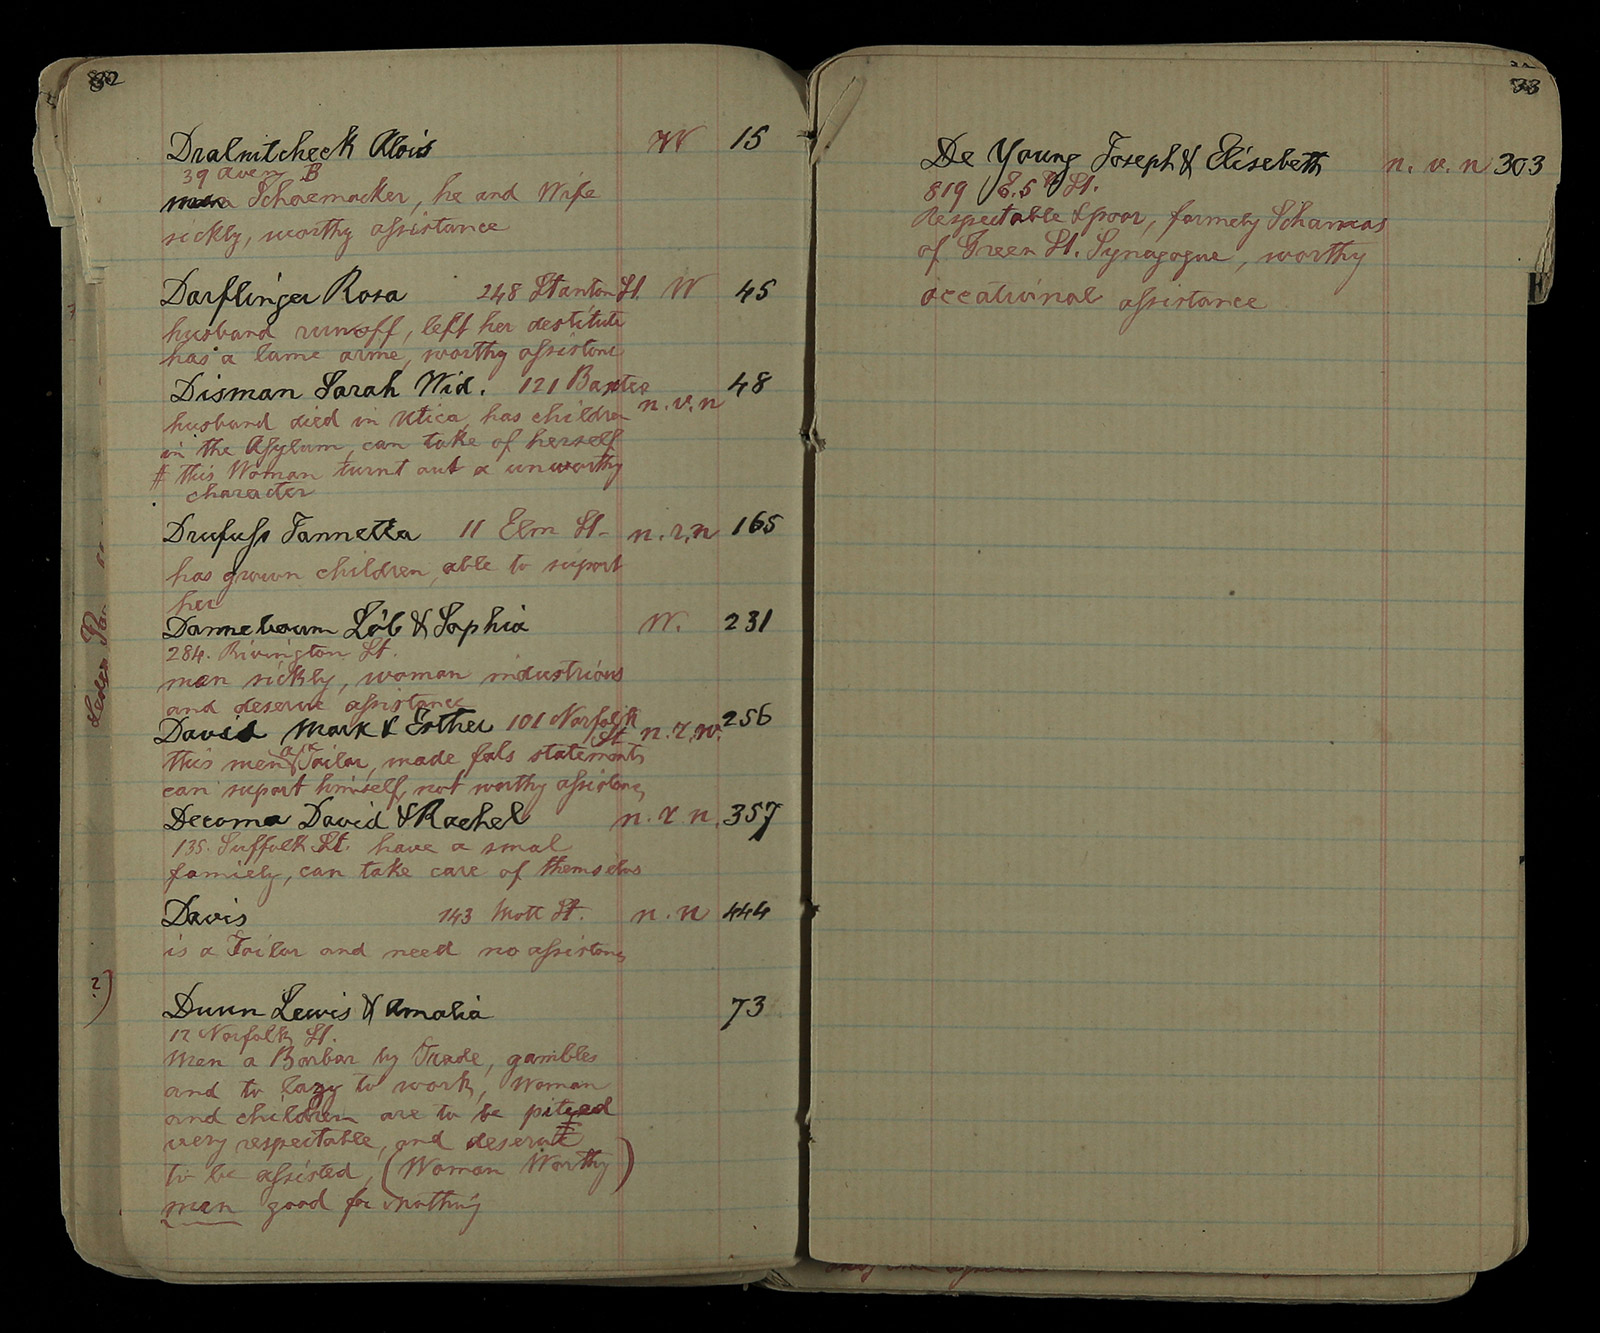 32
Dralnitcheck Alois W 15
39 Aven B
men a Schoemacker, he and Wife
sickly, worthy assistance
Darflinger Rosa 248 Stanton St. W 45
husband runoff, left her destitute
has a lame arme, worthy assistanc
Disman Sarah Wid. 121 Baxter 48
n. v. n
husband died in Utica, has children
in the Asylum, can take of herself
# this Woman turnt out a unworthy
character
Drufuss Jannetta 11 Elm St. n. r. n 165
has grown children, able to suport
her
Dannebaum Löb & Sophia W. 231
284. Rivington St.
men sickly, woman industrious
and deserve assistance
David Mark & Esther 101 Norfolk 256
St n. r. w.
this men a Tailor, made fals statements
can suport himself, not worthy assistanc
Decoma David & Rachel n. r. n. 357
135. Suffolk St. have a smal
famiely, can take care of themselvs
Davis 143 Mott St. n. n 444
is a Tailor and need no assistanc
?)
Dunn Lewis & Amalia 73
12 Norfolk St.
Men a Barbar by Trade, gambles
and to lazy to work, Woman
and children are to be pitied
very respectable, and deserve
to be assisted, (Woman Worthy)
men good for nothing
33
De Young Joseph & Elisebeth n. v. n 303
819 E. 5th St.
Respectable & poor, formely Schamas
of Green St. Synagogue, worthy
occational assistance